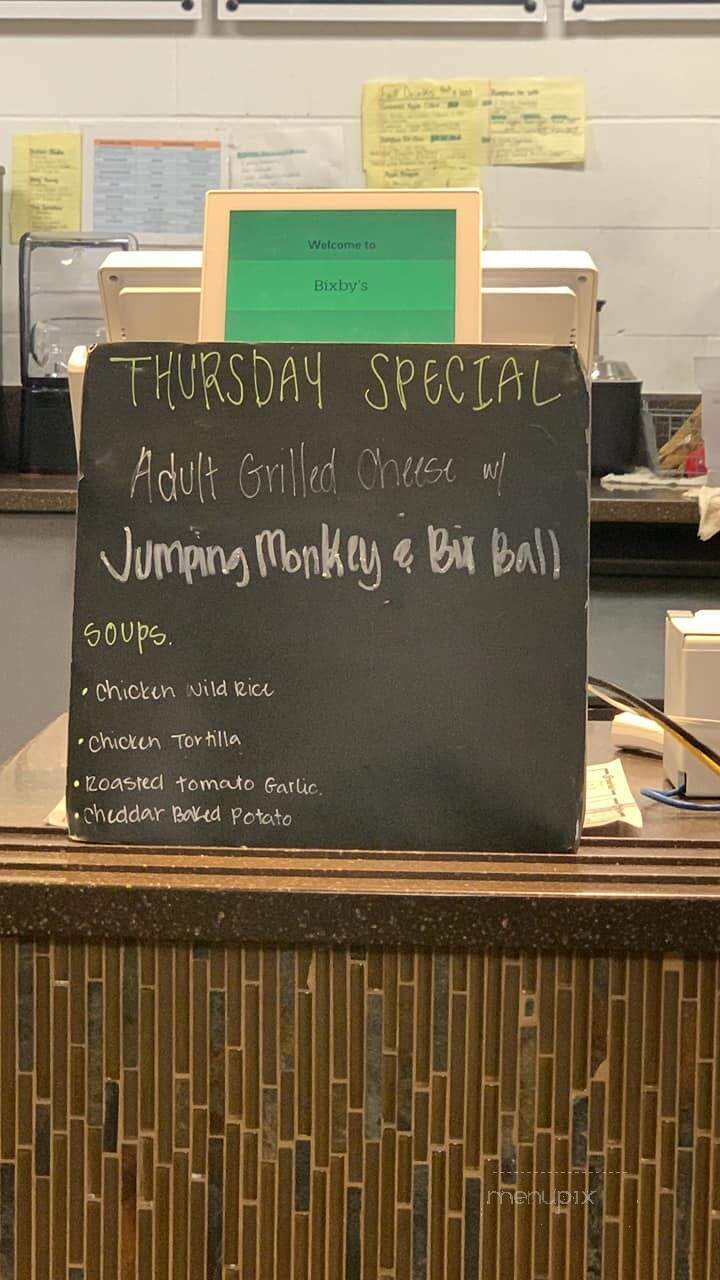 Fall Drinks
Welcome to
Bixby's
THURSDAY SPECIAL
Adult Grilled Cheese w/
Jumping Monkey & Bix Ball
SOUPS.
• Chicken Wild Rice
• Chicken Tortilla
• Roasted Tomato Garlic.
• Cheddar Baked Potato
menupix